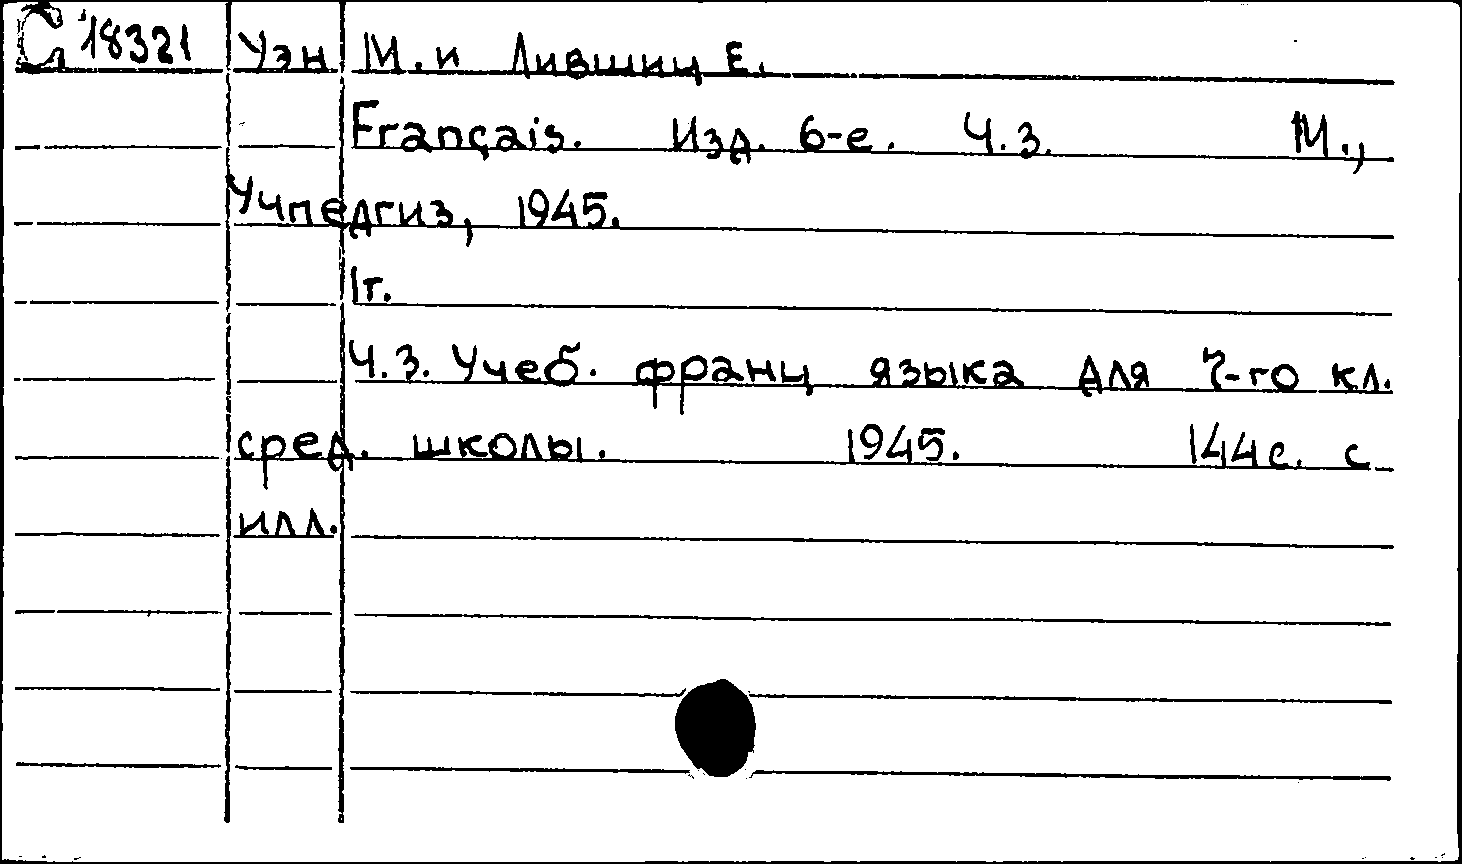 С 18321 Уэн М. и Лившиц Е.
Français. Изд. 6-е. Ч.3. М.,
Учпедгиз, 1945.
1т.
Ч.3. Учеб. франц языка для 7-го кл.
сред. школы. 1945. 144с. с
илл.